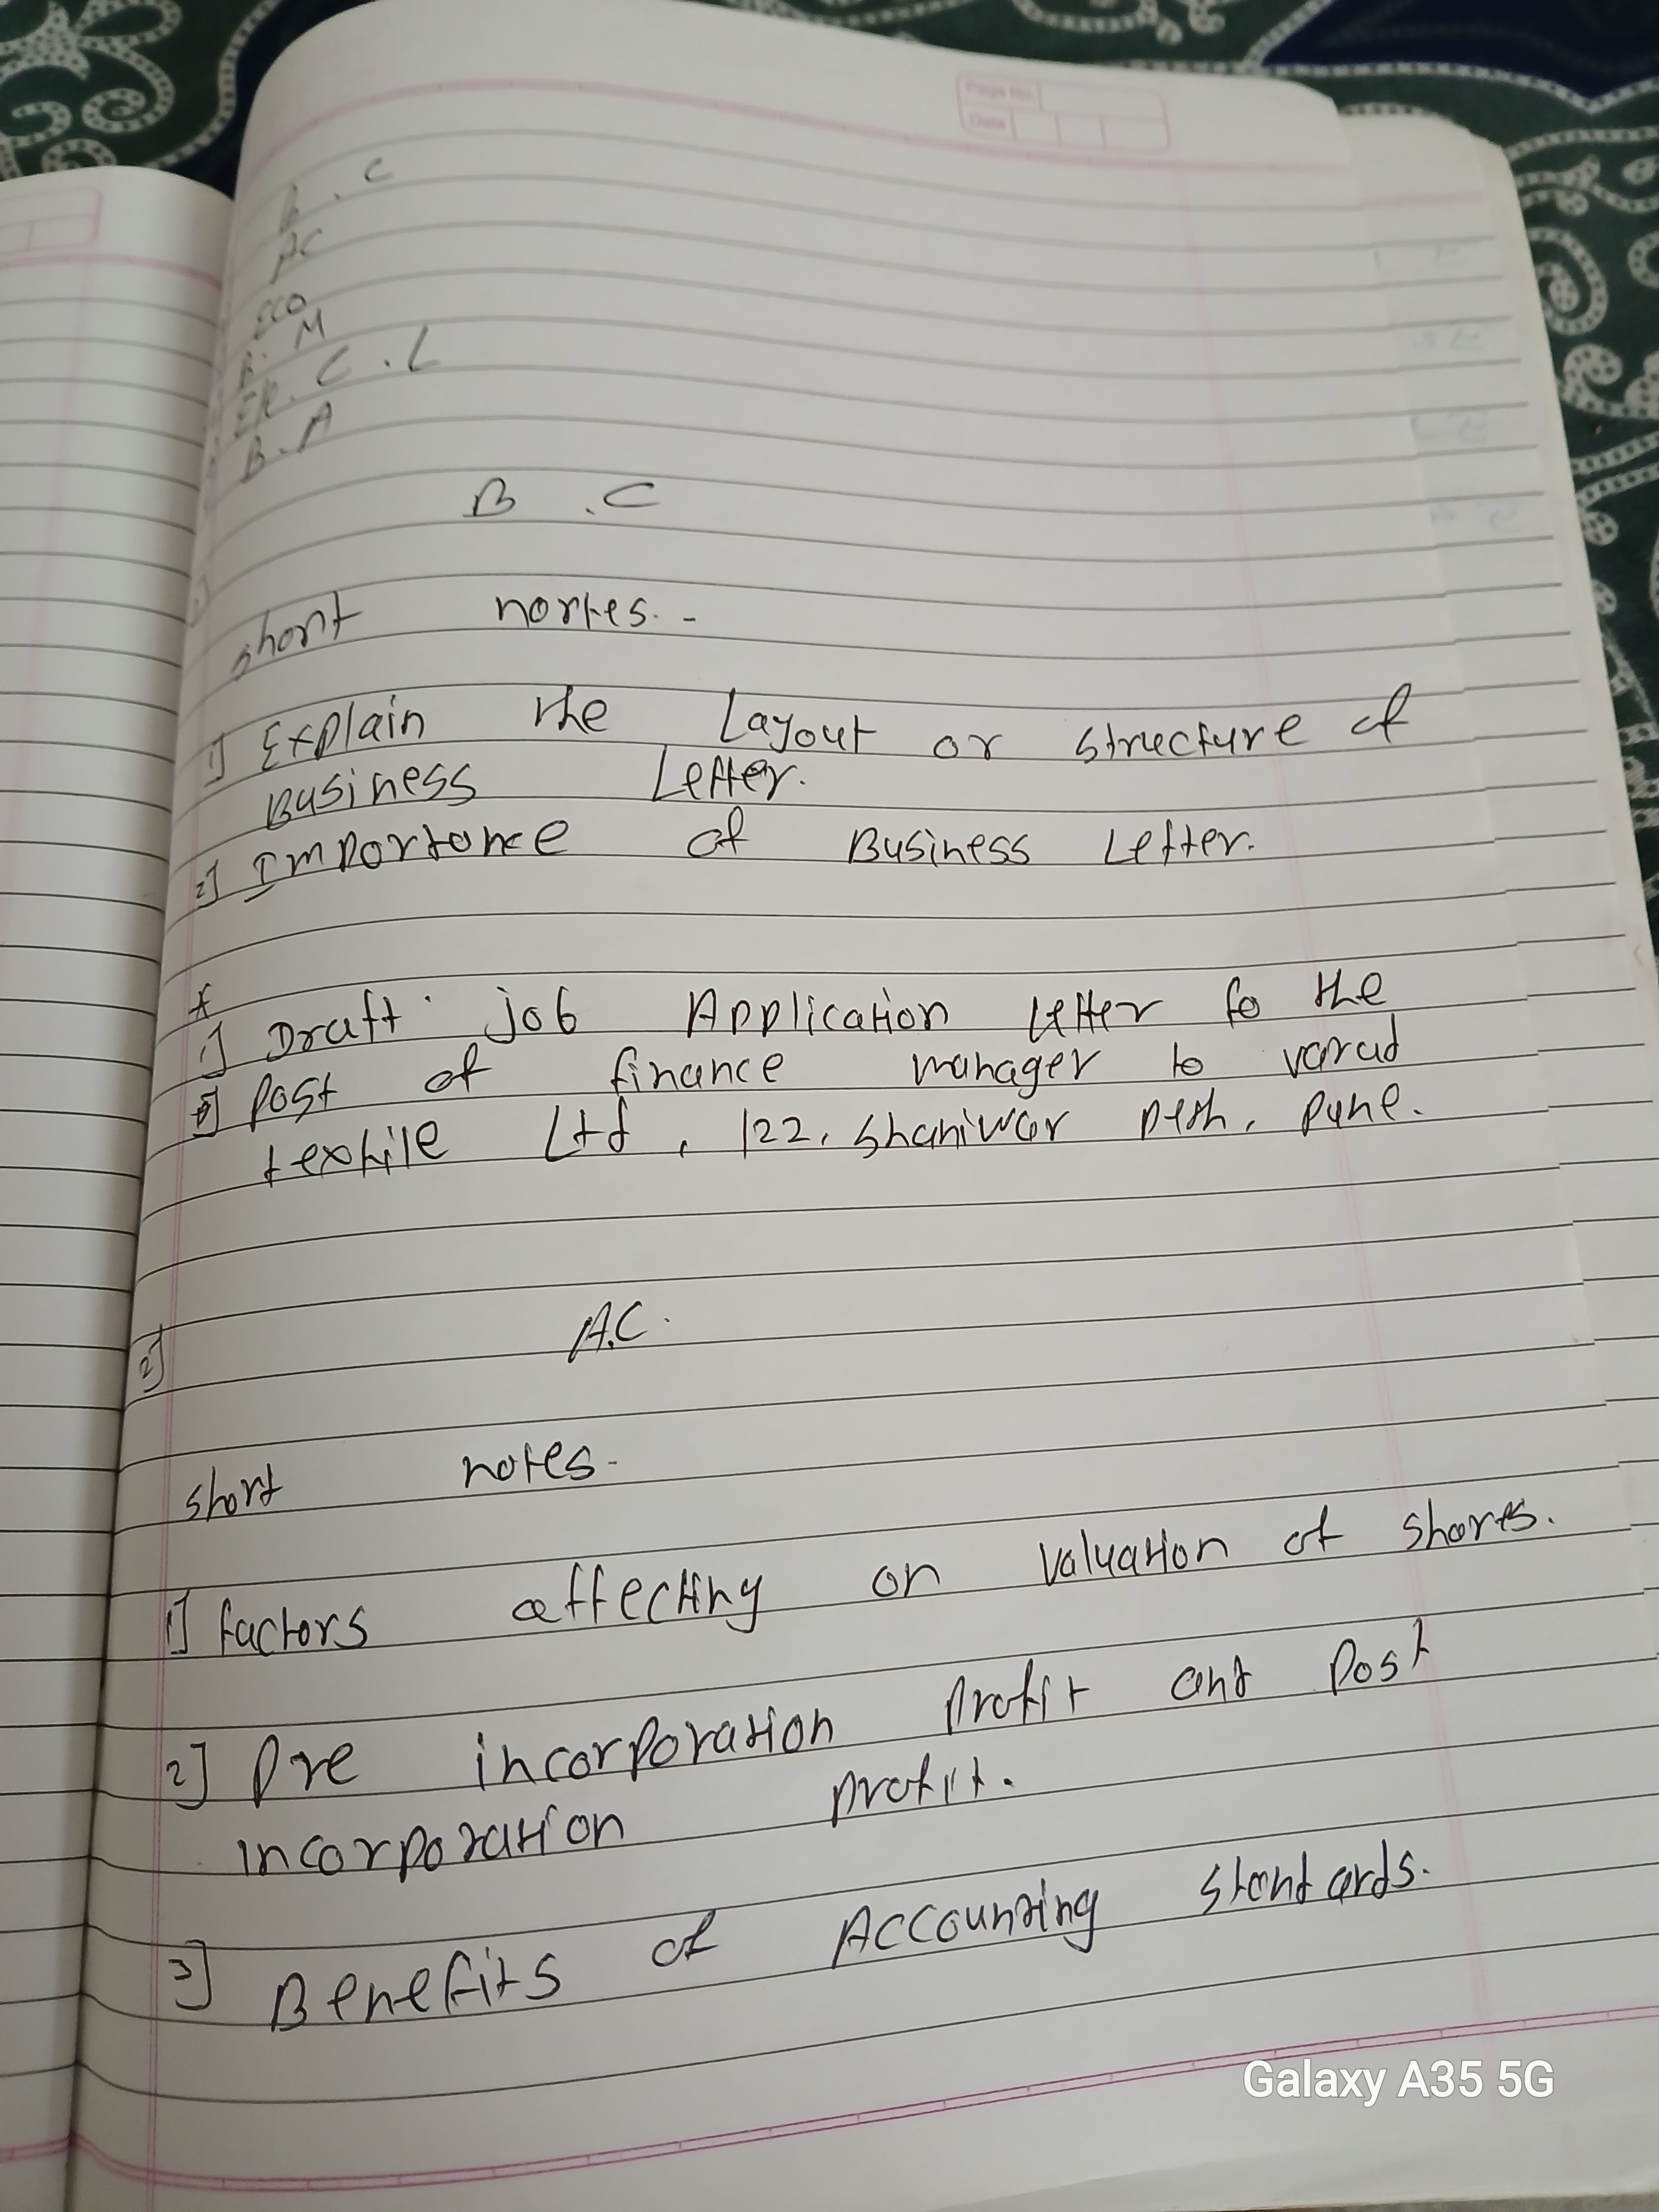 Page No.
Date
B.C
AC
ECO
M
C.L
B.A
B.C
short nortes.-
1] Explain the Layout or structure of
Business Letter.
2] Importance of Business Letter.
*
1] Draft job Application letter fo the
Post of finance manager to varad
textile Ltd, 122, Shaniwar peth, Pune.
2] A.C.
short notes.
1] factors affecting on valuation of shares.
2] Pre incorporation profit and post
incorporation profit.
3] Benefits of Accounting standards.
Galaxy A35 5G